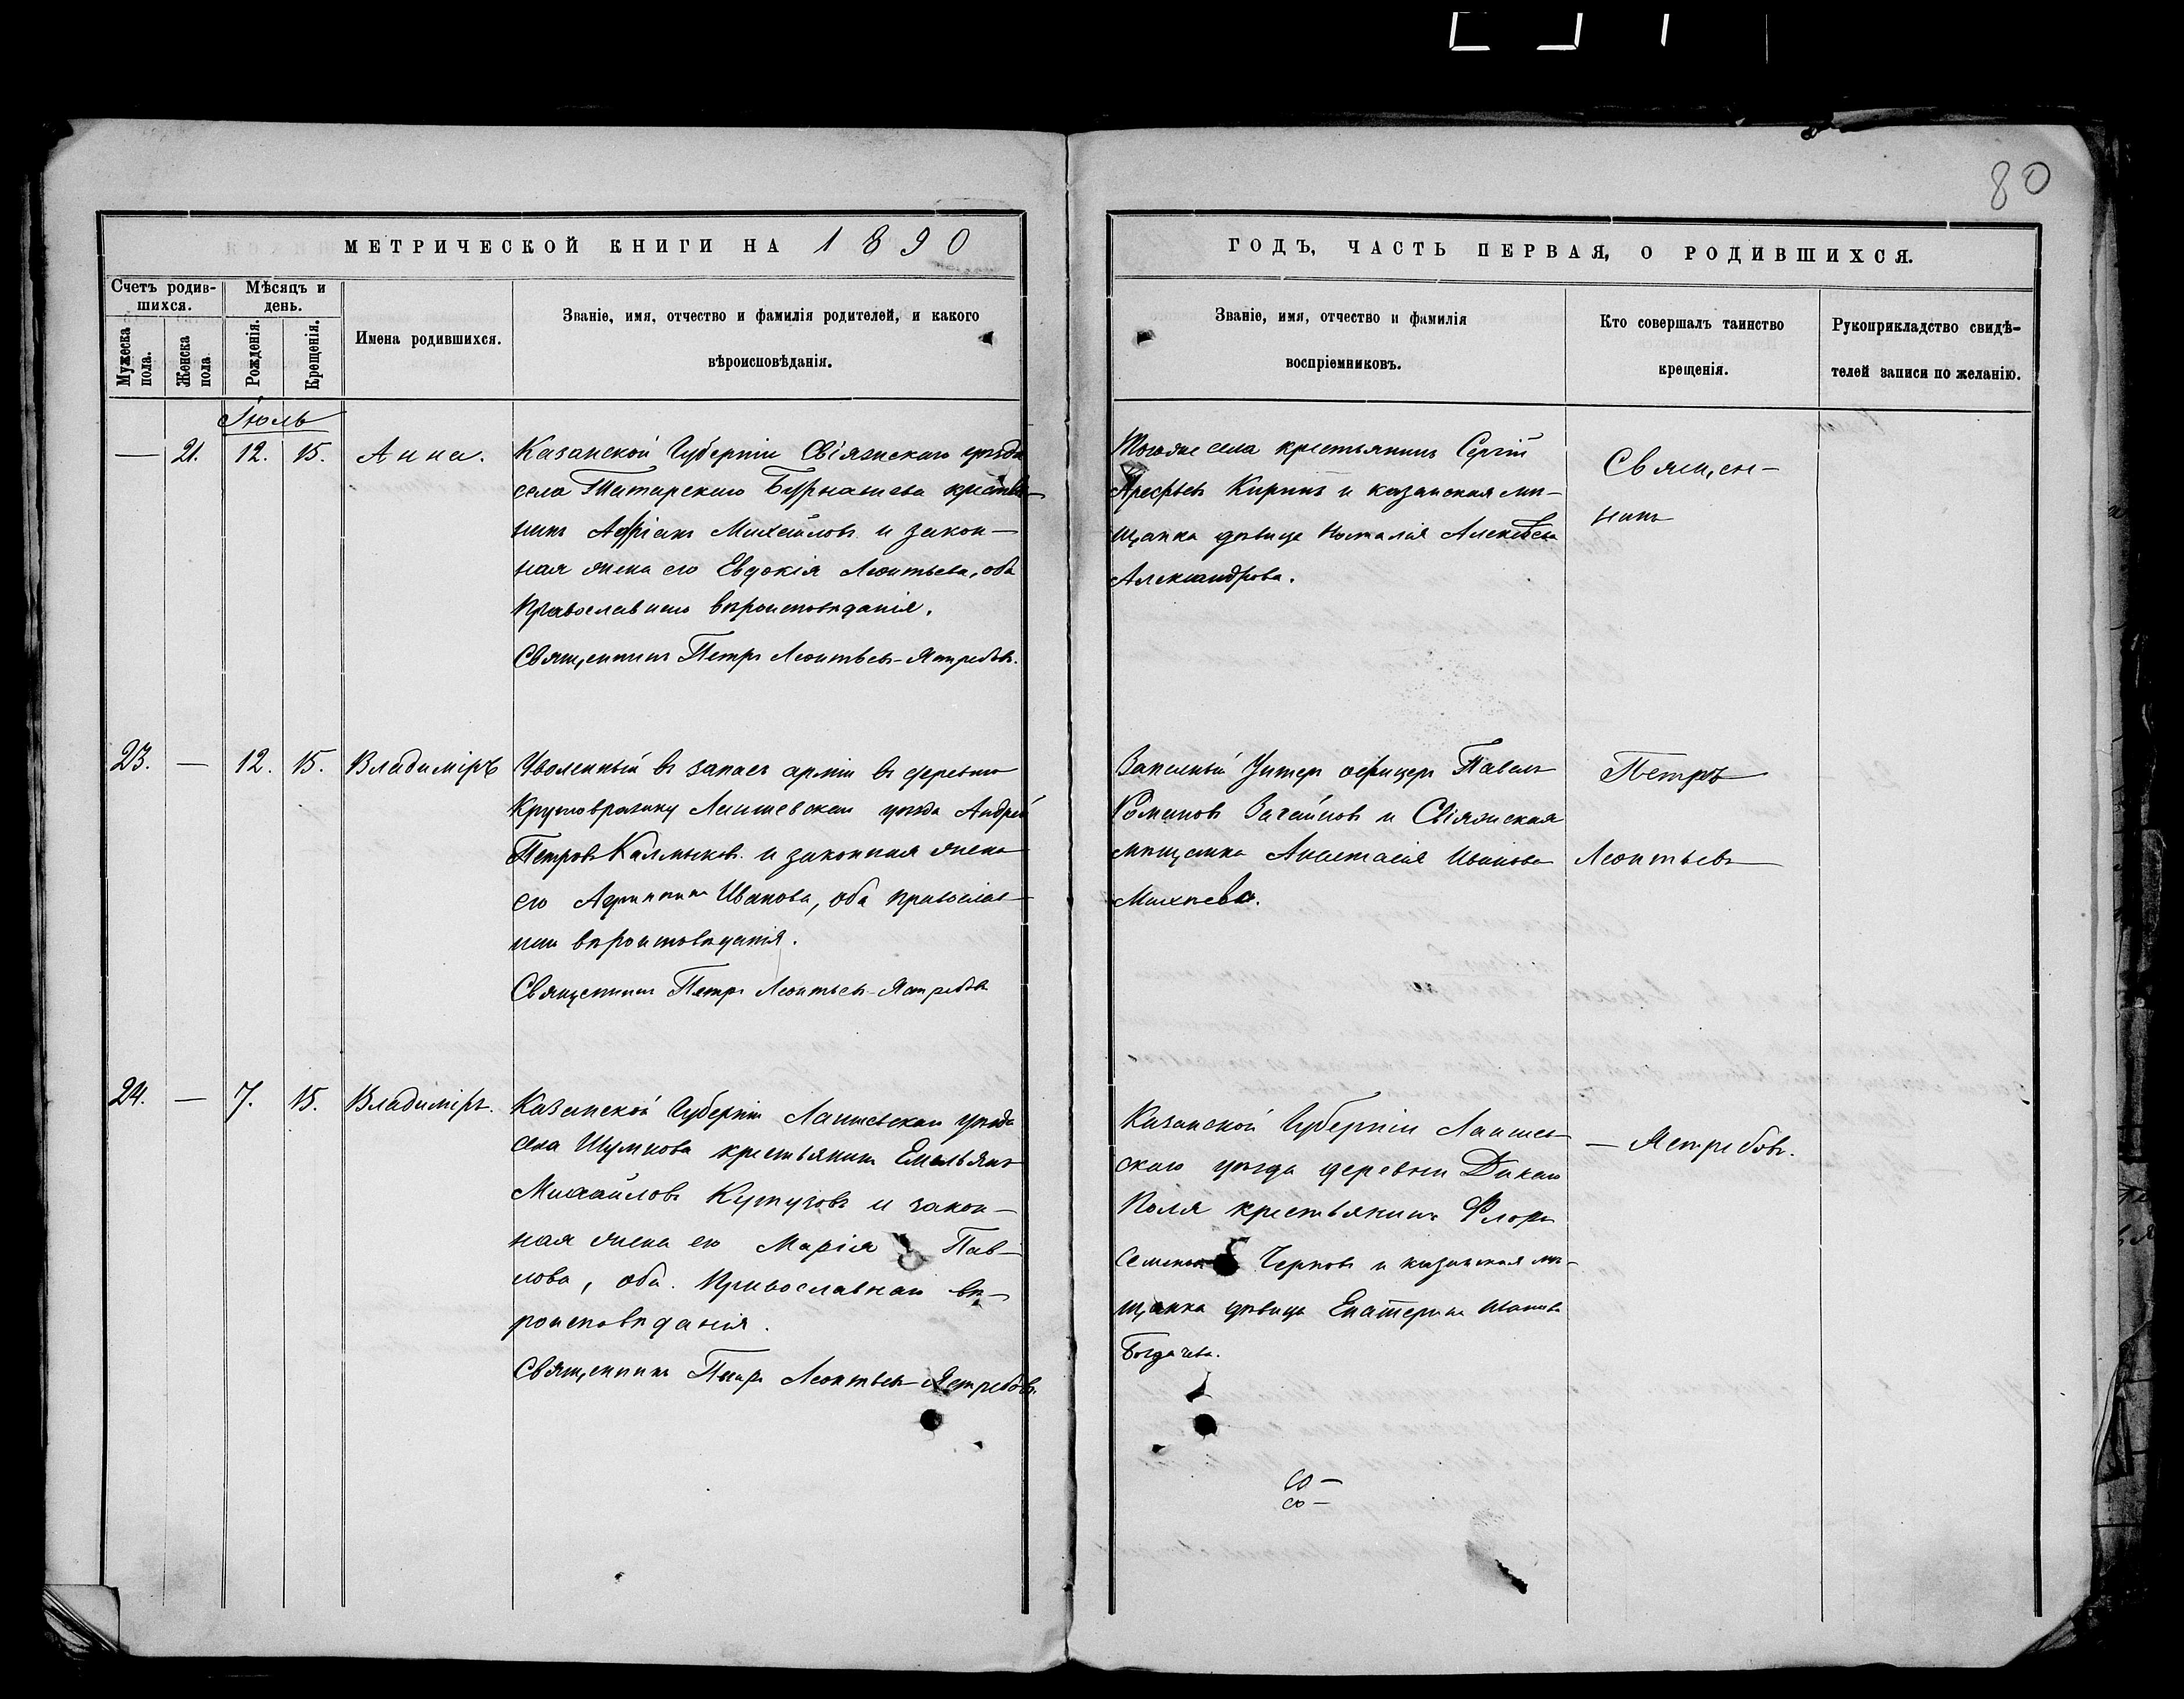 80
МЕТРИЧЕСКОЙ КНИГИ НА 1890
Счетъ родив-
шихся.
Мѣсяцъ и
день.
Мужеска
пола.
Женска
пола
Рожденія.
Крещенія.
Имена родившихся.
Званіе, имя, отчество и фамилія родителей, и какого
вѣроисповѣданія.
Іюль
— 21. 12. 15. Анна.
Казанской Губерніи Свіяжскаго уѣзда
села Татарскаго Бурнашева крестья-
нинъ Адріанъ Михайловъ и закон-
ная жена его Евдокія Леонтьева, оба
православнаго вѣроисповѣданія.
Священникъ Петръ Леонтьевъ-Ястребовъ.
23. — 12. 15. Владиміръ
Уволенный въ запасъ арміи въ деревню
Лаишевскаго уѣзда Андрей
Петровъ Калмыковъ и законная жена
его Иванова, оба православ-
наго вѣроисповѣданія.
Священникъ Петръ Леонтьевъ-Ястребовъ
24. — 7. 15. Владиміръ.
Казанской Губерніи Лаишевскаго уѣзда
села Шумкова крестьянинъ Емельянъ
Михайловъ и закон-
ная жена его Марія Пав-
лова, оба православнаго вѣ-
роисповѣданія.
Священникъ Петръ Леонтьевъ-Ястребовъ.
ГОДЪ, ЧАСТЬ ПЕРВАЯ, О РОДИВШИХСЯ.
Званіе, имя, отчество и фамилія
воспріемниковъ.
Кто совершалъ таинство
крещенія.
Рукоприкладство свидѣ-
телей записи по желанію.
Тогоже села крестьянинъ Сергій
и казанская мѣ-
щанка дѣвица Наталія Алексѣева
Александрова.
Запасный Унтеръ офицеръ Павелъ
Романовъ и Свіяжская
мѣщанка Анастасія Иванова
Михѣева.
Казанской Губерніи Лаишев-
скаго уѣзда деревни Дикаго
Поля крестьянинъ Флоръ
Семеновъ Черновъ и казанская мѣ-
щанка дѣвица Екатерина Иванова
Священ-
никъ
Петръ
Леонтьевъ
— Ястребовъ.